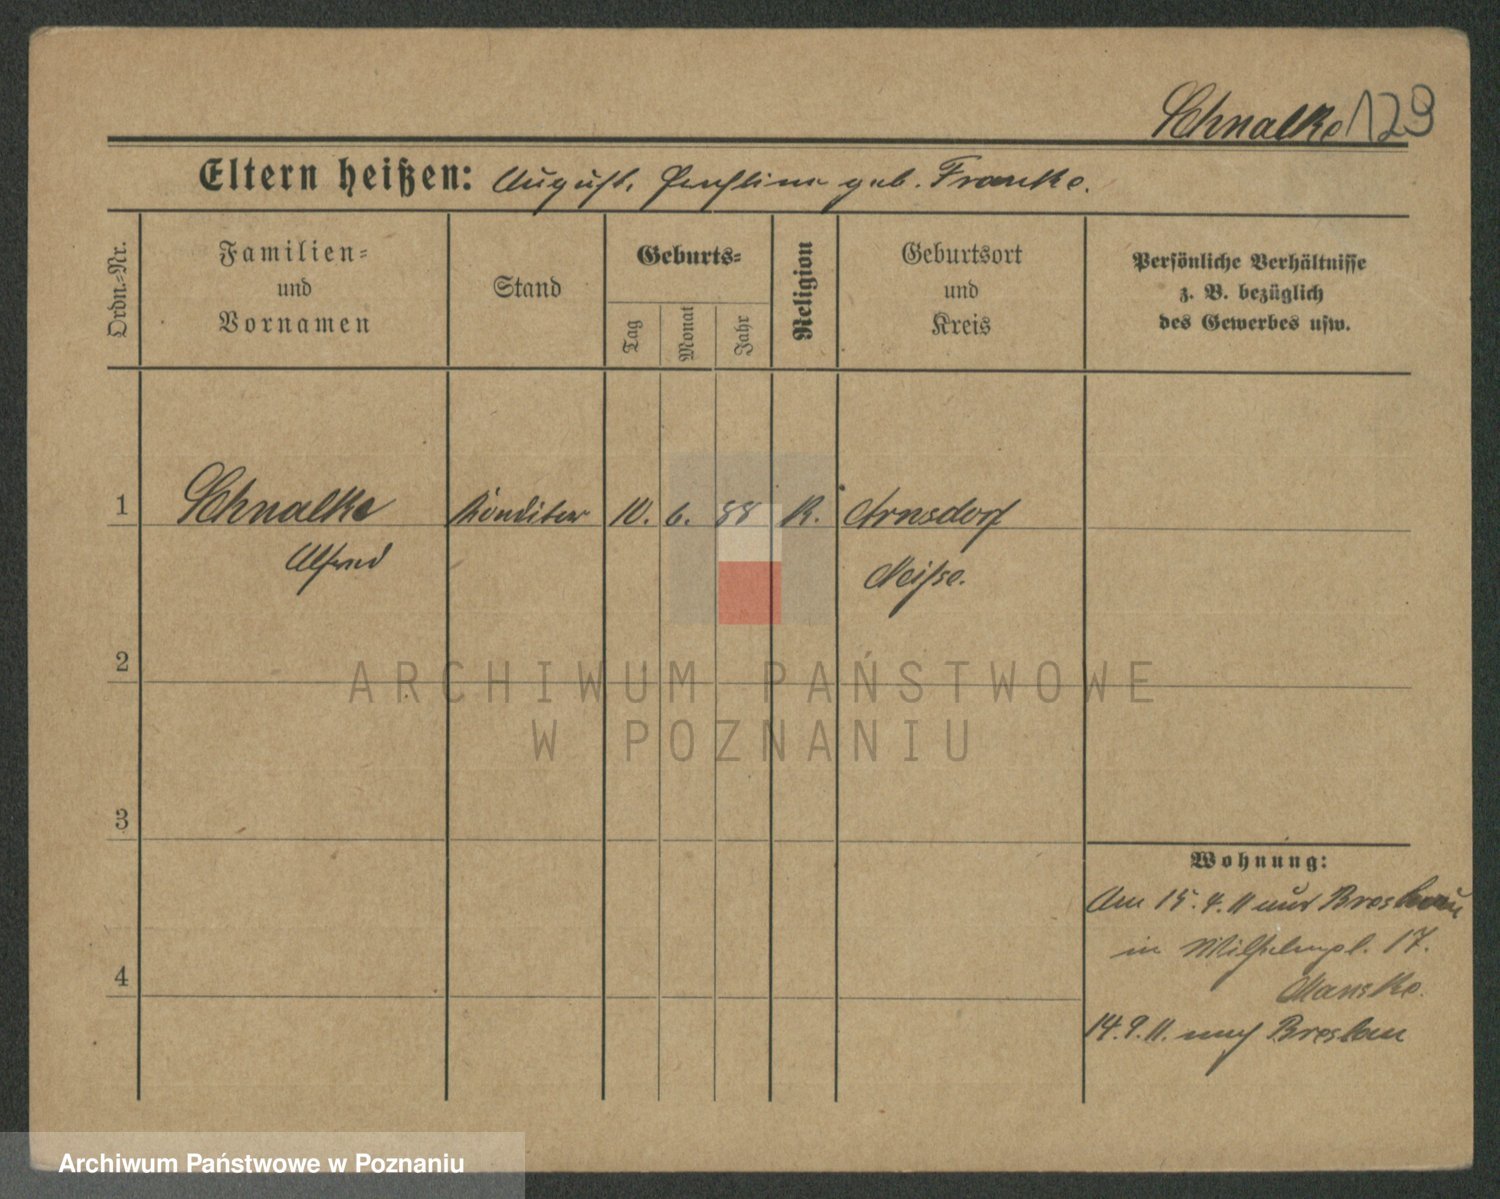 Schnalke 129
Eltern heißen: August, geb. Franke.
Ordn.-Nr.
Familien-
und
Vornamen
Stand
Geburts-
Tag
Monat
Jahr
Religion
Geburtsort
und
Kreis
Persönliche Verhältnisse
z. B. bezüglich
des Gewerbes usw.
1 Schnalke Konditor 10. 6. 88 K. Arnsdorf
Alfred Neisse.
2
3
4
Wohnung:
Am 15.4.11 aus Breslau
in Wilhelmpl. 17.
Manske.
14.9.11. nach Breslau
ARCHIWUM PAŃSTWOWE
W POZNANIU
Archiwum Państwowe w Poznaniu